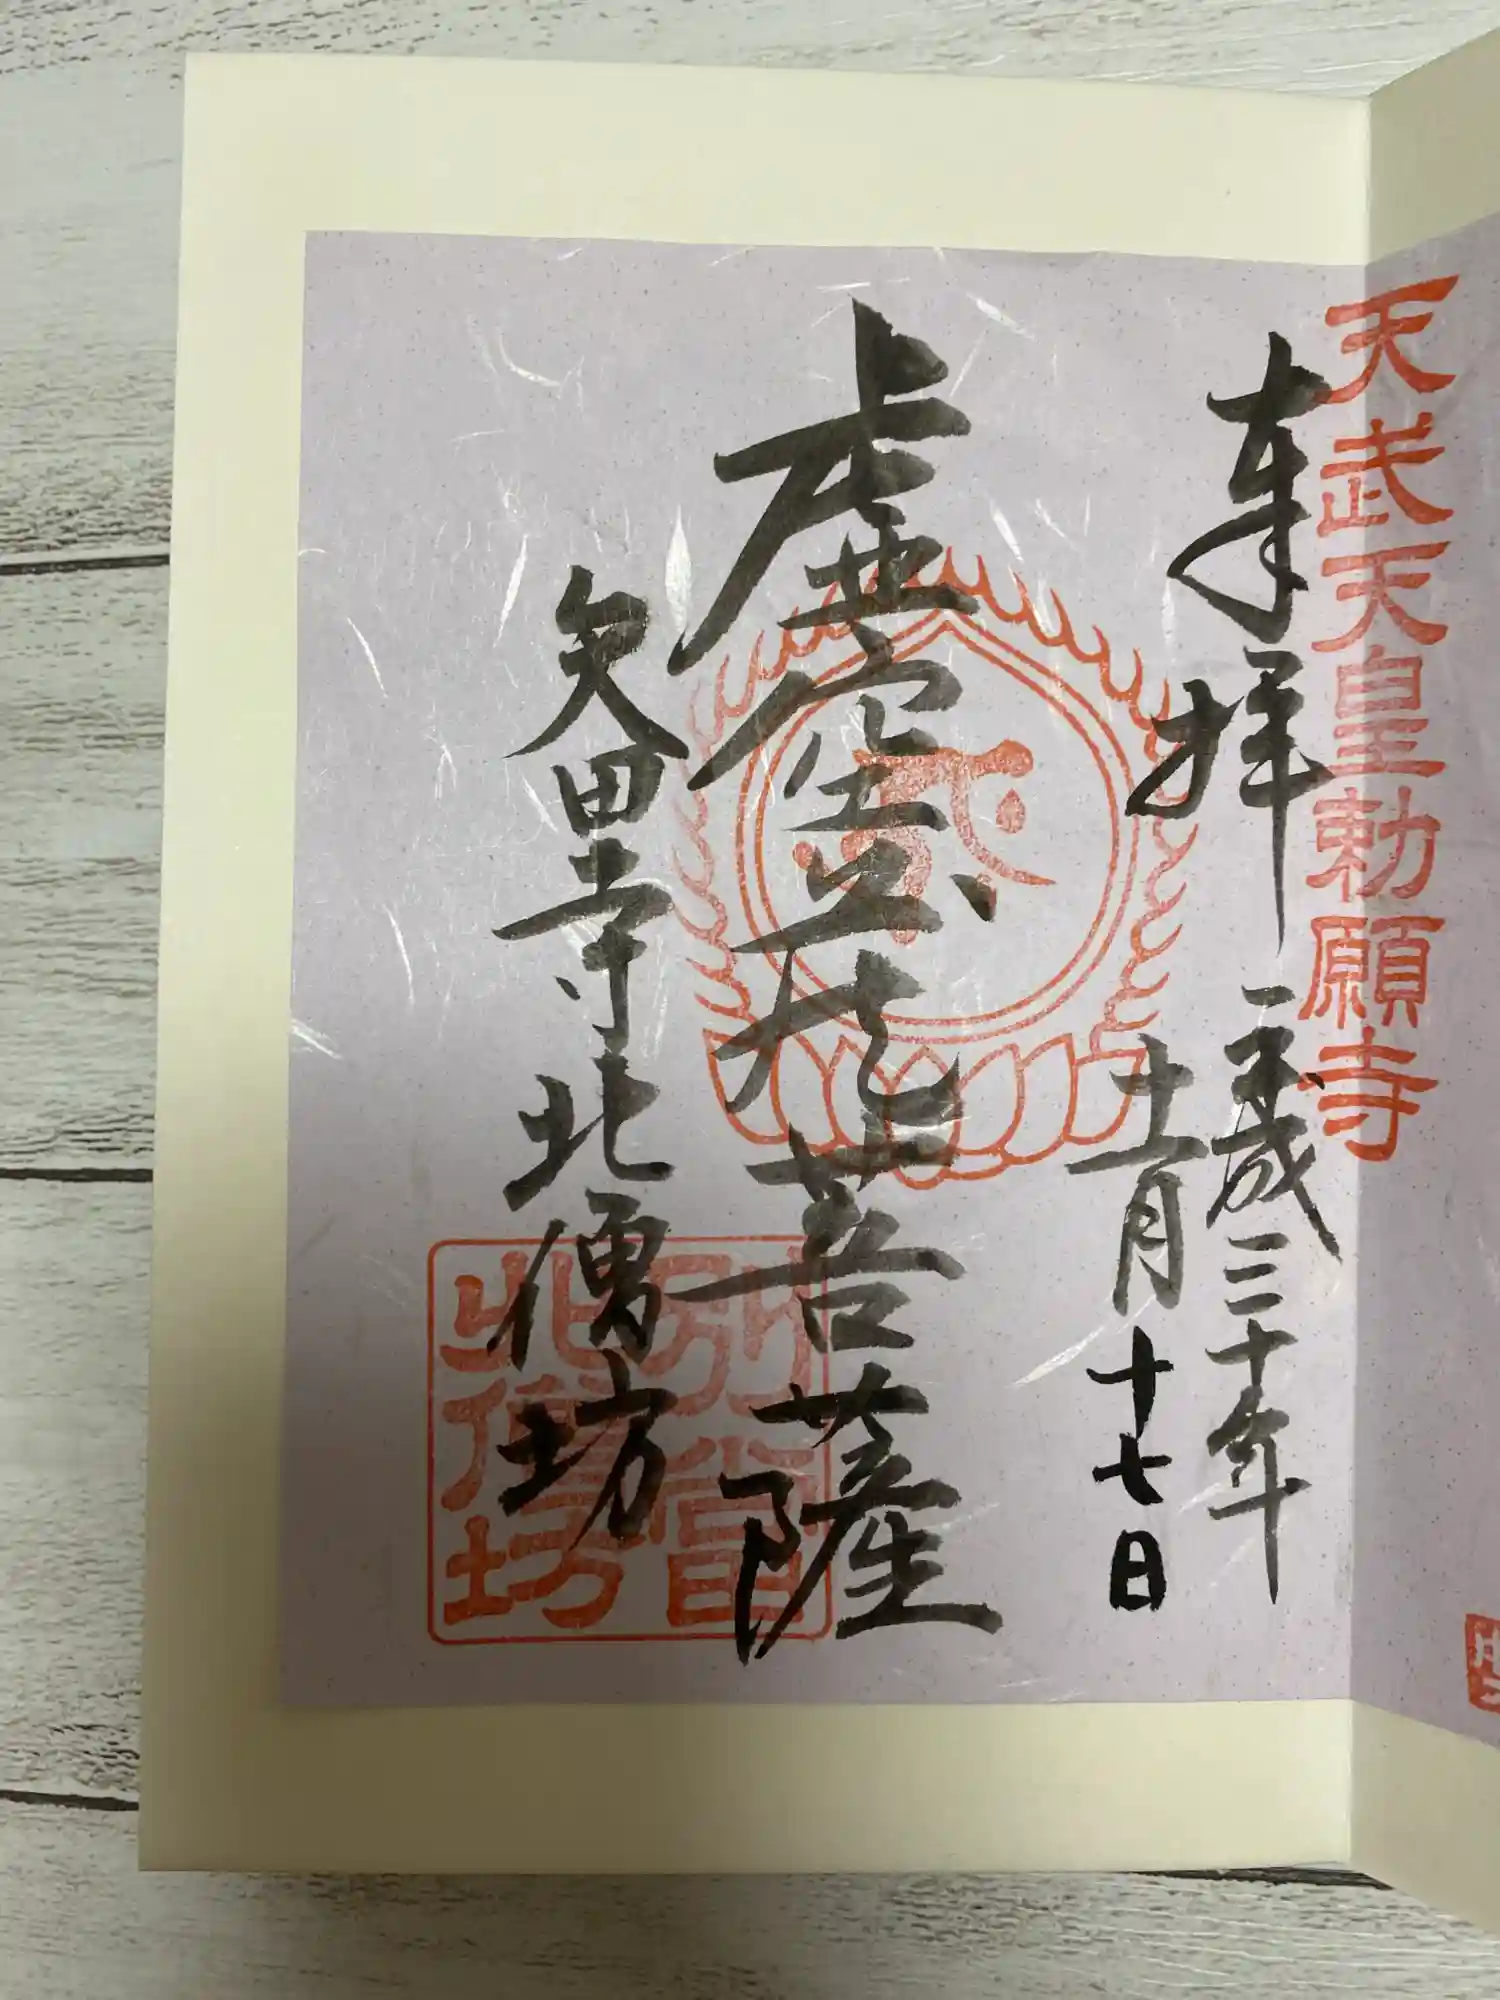 天武天皇勅願寺
奉拝
平成三十年
十一月十七日
虚空蔵菩薩
矢田寺北僧坊
別當
北僧坊